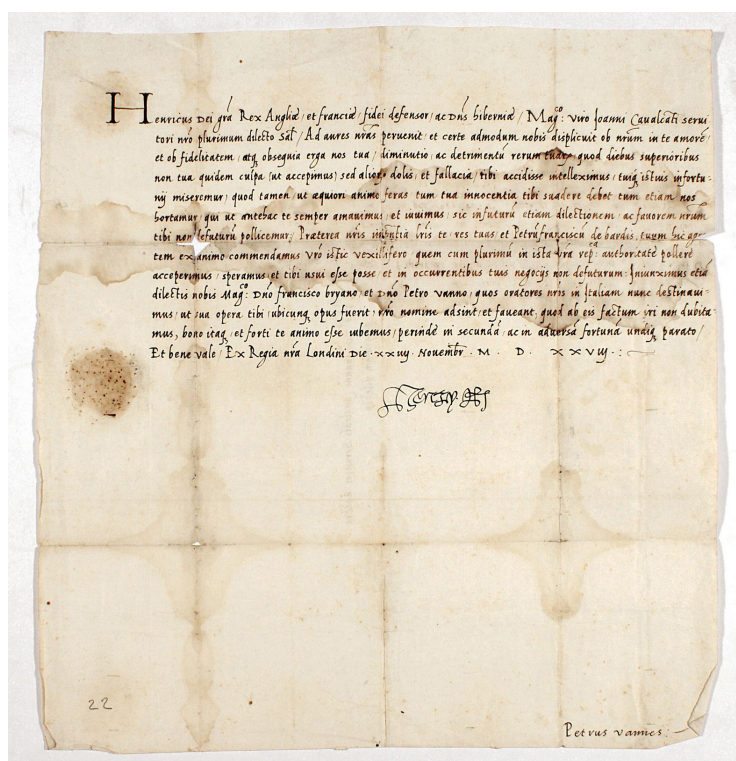 Henricus Dei grā Rex Angliæ, et franciæ, fidei defensor, ac Dñs hiberniæ, Magco: viro Joanni Cavalcāti servi
tori nr̄o plurimum dilecto Sal̄, Ad aures nr̄as pervenit, et certe admodum nobis displicuit ob nr̄um in te amorē,
et ob fidelitatem, atq; obsequia erga nos tua, diminutio, ac detrimentū rerum tuarȝ quod diebus superioribus
non tua quidem culpa (ut accepimus) sed aliorȝ dolis, et fallacia, tibi accidisse intelleximus, tuiq; istius infortu-
nij miseremur, quod tamen, ut æquiori animo feras tum tua innocentia tibi suadere debet tum etiam nos
hortamur, qui ut antehac te semper amavimus, et iuvimus, sic infuturū etiam dilectionem, ac favorem nr̄um
tibi non defuturū pollicemur, Præterea nr̄is lr̄is te, res tuas, et Petrū franciscū de bardis, tuum hic agē-
tem ex animo commendamus vr̄o istic vexillifero quem cum plurimū in ista vr̄a repca: authoritate pollere
acceperimus, speramus, et tibi usui esse posse, et in occurrentibus tuis negocijs non defuturum, Iniunximus etiā
dilectis nobis Magcis: Dn̄o francisco bryano, et Dn̄o Petro vanno, quos oratores nr̄os in Italiam nunc destinavi-
mus, ut sua opera tibi ubicunq; opus fuerit, nr̄o nomine adsint, et faveant, quod ab eis factum iri non dubita-
mus, bono itaq;, et forti te animo esse iubemus, perinde in secunda, ac in adversa fortuna undiq; parato,
Et bene vale, Ex Regia nr̄a Londini Die · xxviij Novembr̄ · M · D · XXViij ·:
Henry R
22
Petrus vannes: